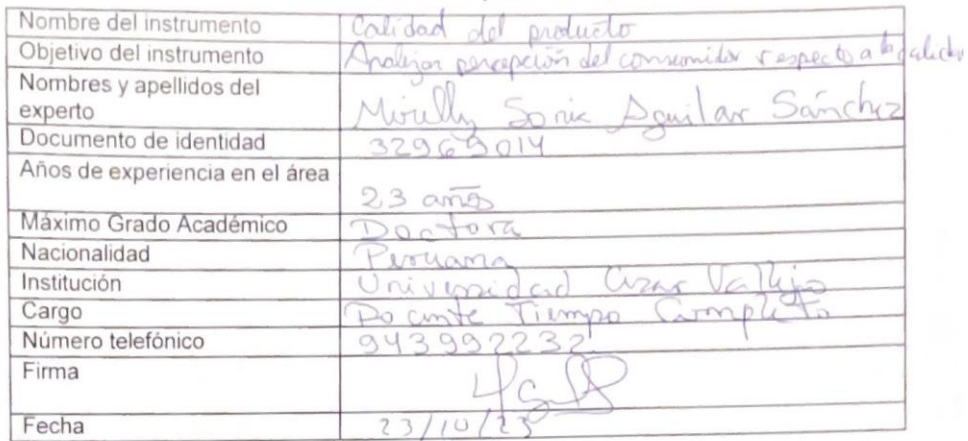 Nombre del instrumento Calidad del producto
Objetivo del instrumento Analizar percepción del consumidor respecto a la calidad
Nombres y apellidos del
experto Mirelly Sonia Aguilar Sánchez
Documento de identidad 32969014
Años de experiencia en el área
23 años
Máximo Grado Académico Doctora
Nacionalidad Peruana
Institución Universidad Cesar Vallejo
Cargo Docente Tiempo Completo
Número telefónico 943992232
Firma
Fecha 23/10/23